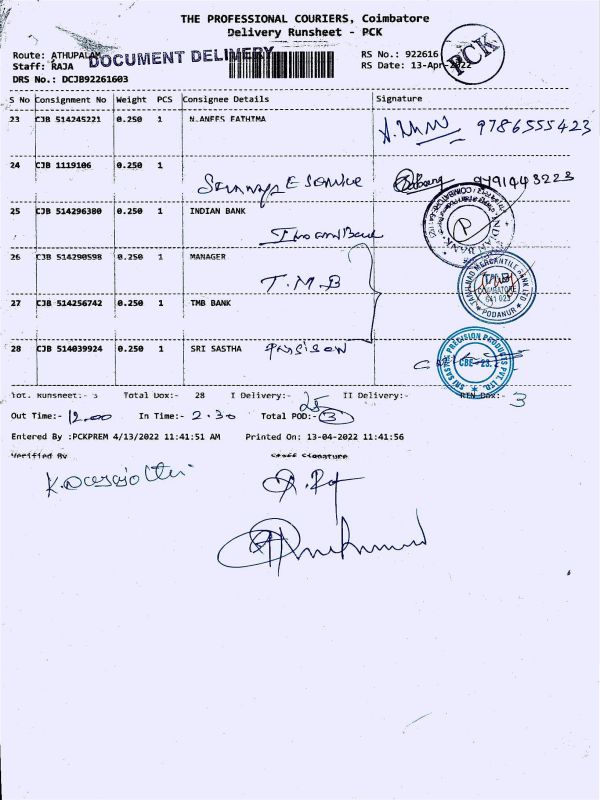 THE PROFESSIONAL COURIERS, Coimbatore
Delivery Runsheet - PCK
PCK
Route: ATHUPALAM
DOCUMENT DELIVERY
RS No.: 922616
Staff: RAJA
RS Date: 13-Apr-2022
DRS No.: DCJB92261603
S No Consignment No Weight PCS Consignee Details Signature
23 CJB 514245221 0.250 1 N.ANEES FATHIMA
9786555423
24 CJB 1119106 0.250 1
9791443223
25 CJB 514296380 0.250 1 INDIAN BANK
Indian Bank
INDIAN BANK
26 CJB 514290598 0.250 1 MANAGER
T.M.B
TAMILNAD MERCANTILE BANK LTD
COIMBATORE
641 023
PODANUR
27 CJB 514256742 0.250 1 TMB BANK
28 CJB 514039924 0.250 1 SRI SASTHA
SRI SASTHA PRECISION PRODUCTS PVT. LTD.
CBE - 23.
Tot. Runsheet:- 3 Total Dox:- 28 I Delivery:- 25 II Delivery:- RTN Dox:- 3
Out Time:- 12.00 In Time:- 2.30 Total POD:- 3
Entered By :PCKPREM 4/13/2022 11:41:51 AM Printed On: 13-04-2022 11:41:56
Verified By Staff Signature